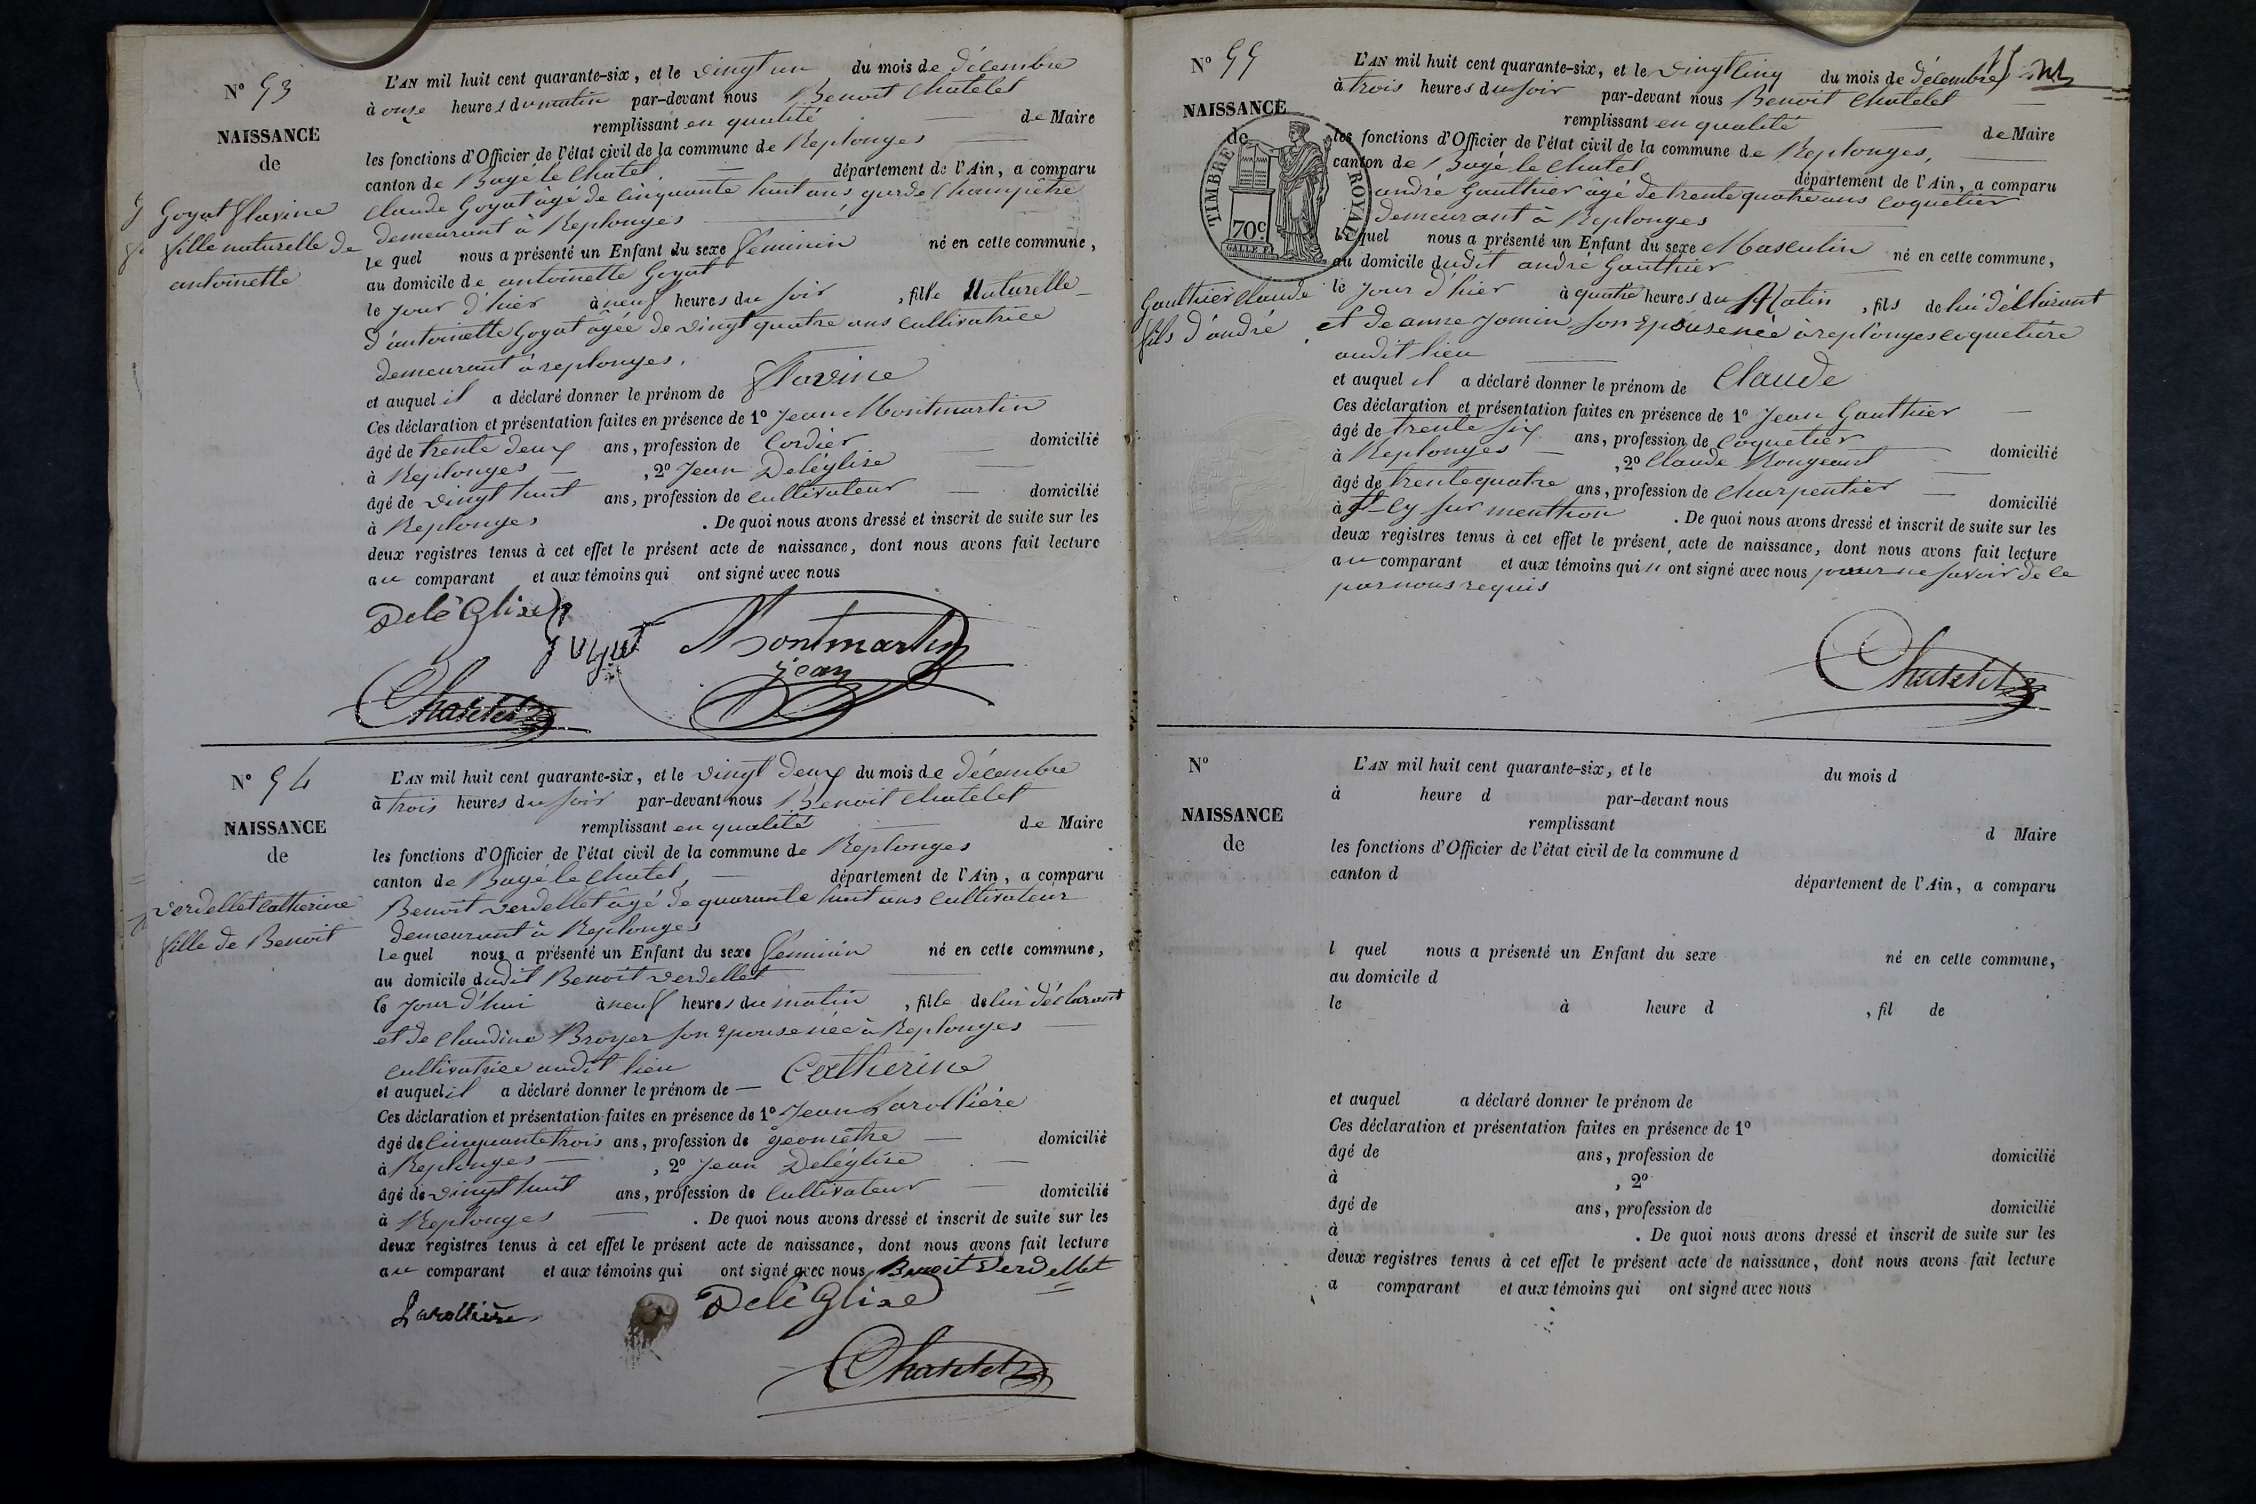 N° 53
NAISSANCE
de
Goyat flavine
fille naturelle de
antoinette
L'AN mil huit cent quarante-six, et le vingt un du mois de décembre
à onze heures du matin par-devant nous Benoit Chatelet
remplissant en qualité de Maire
les fonctions d'Officier de l'état civil de la commune de Replonges
canton de Bagé le Chatel département de l'Ain, a comparu
Claude Goyat âgé de cinquante huit ans garde Champêtre
demeurant à Replonges
le quel nous a présenté un Enfant du sexe féminin né en cette commune,
au domicile de antoinette Goyat
le jour d'hier à neuf heures du soir, fille Naturelle
d'antoinette Goyat âgée de vingt quatre ans cultivatrice
demeurant à replonges.
et auquel il a déclaré donner le prénom de flavine
Ces déclaration et présentation faites en présence de 1° Jean Montmartin
âgé de trente deux ans, profession de Cordier domicilié
à Replonges, 2° Jean Deléglise
âgé de vingt huit ans, profession de cultivateur domicilié
à Replonges. De quoi nous avons dressé et inscrit de suite sur les
deux registres tenus à cet effet le présent acte de naissance, dont nous avons fait lecture
au comparant et aux témoins qui ont signé avec nous
Deléglise
Montmartin
jean
Chatelet
N° 54
NAISSANCE
de
verdellet catherine
fille de Benoit
L'AN mil huit cent quarante-six, et le vingt deux du mois de décembre
à trois heures du soir par-devant nous Benoit Chatelet
remplissant en qualité de Maire
les fonctions d'Officier de l'état civil de la commune de Replonges
canton de Bagé le Chatel, département de l'Ain, a comparu
Benoit verdellet âgé de quarante huit ans cultivateur
demeurant à Replonges
le quel nous a présenté un Enfant du sexe féminin né en cette commune,
au domicile dudit Benoit verdellet
le jour d'hui à neuf heures du matin, fille de lui déclarant
et de Claudine Broyer son Epouse née à Replonges
cultivatrice audit lieu
et auquel il a déclaré donner le prénom de Catherine
Ces déclaration et présentation faites en présence de 1° Jean Larollière
âgé de cinquante trois ans, profession de géomètre domicilié
à Replonges, 2° Jean Deléglise
âgé de vingt huit ans, profession de cultivateur domicilié
à Replonges. De quoi nous avons dressé et inscrit de suite sur les
deux registres tenus à cet effet le présent acte de naissance, dont nous avons fait lecture
au comparant et aux témoins qui ont signé avec nous Benoit Verdellet
Larollière
Deléglise
Chatelet
N° 55
NAISSANCE
de
TIMBRE ROYAL
70c
GALLE F.
Gaulthier Claude
fils d'andré
L'AN mil huit cent quarante-six, et le vingt cinq du mois de décembre
à trois heures du soir par-devant nous Benoit Chatelet
remplissant en qualité de Maire
les fonctions d'Officier de l'état civil de la commune de Replonges,
canton de Bagé le Chatel département de l'Ain, a comparu
andré Gaulthier âgé de trente quatre ans coquetier
demeurant à Replonges
le quel nous a présenté un Enfant du sexe Masculin né en cette commune,
au domicile dudit andré Gaulthier
le jour d'hier à quatre heures du Matin, fils de lui déclarant
et de anne jomin son Epouse née à replonges coquetière
audit lieu
et auquel il a déclaré donner le prénom de Claude
Ces déclaration et présentation faites en présence de 1° Jean Gaulthier
âgé de trente six ans, profession de coquetier domicilié
à Replonges, 2° Claude Rongeant
âgé de trente quatre ans, profession de charpentier domicilié
à St Cy sur menthon. De quoi nous avons dressé et inscrit de suite sur les
deux registres tenus à cet effet le présent acte de naissance, dont nous avons fait lecture
au comparant et aux témoins qui n'ont signé avec nous pour ne savoir de ce
par nous requis
Chatelet
N°
NAISSANCE
de
L'AN mil huit cent quarante-six, et le du mois d
à heure d par-devant nous
remplissant d Maire
les fonctions d'Officier de l'état civil de la commune d
canton d département de l'Ain, a comparu
l quel nous a présenté un Enfant du sexe né en cette commune,
au domicile d
le à heure d, fil de
et auquel a déclaré donner le prénom de
Ces déclaration et présentation faites en présence de 1°
âgé de ans, profession de domicilié
à, 2°
âgé de ans, profession de domicilié
à. De quoi nous avons dressé et inscrit de suite sur les
deux registres tenus à cet effet le présent acte de naissance, dont nous avons fait lecture
a comparant et aux témoins qui ont signé avec nous